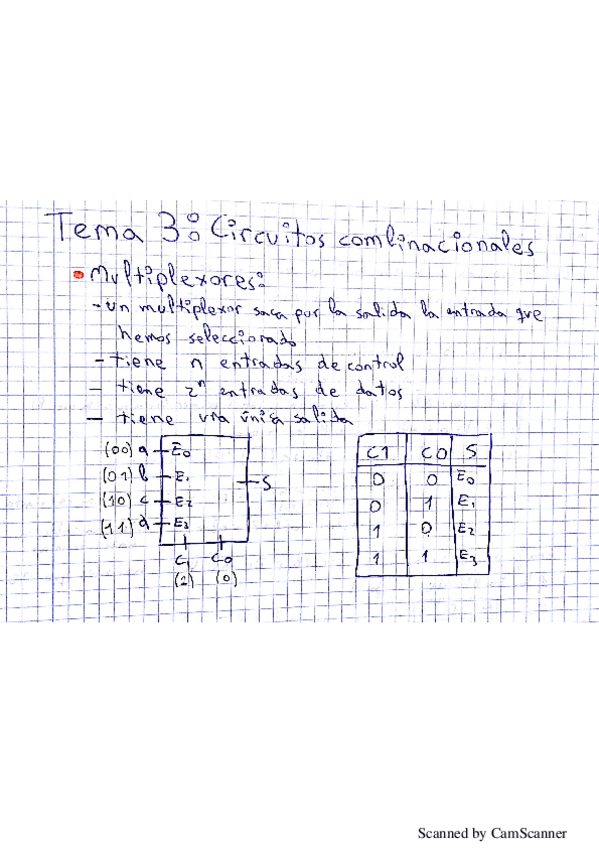 Tema 3: Circuitos combinacionales
• Multiplexores:
- Un multiplexor saca por la salida la entrada que
hemos seleccionado
- tiene n entradas de control
- tiene 2ⁿ entradas de datos
- tiene una única salida
(00) a E0
(01) b E1
(10) c E2
(11) d E3
S
C1 C0
(1) (0)
C1 C0 S
0 0 E0
0 1 E1
1 0 E2
1 1 E3
Scanned by CamScanner